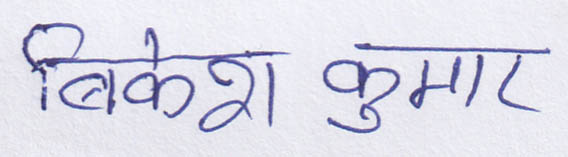 बिकेश कुमार